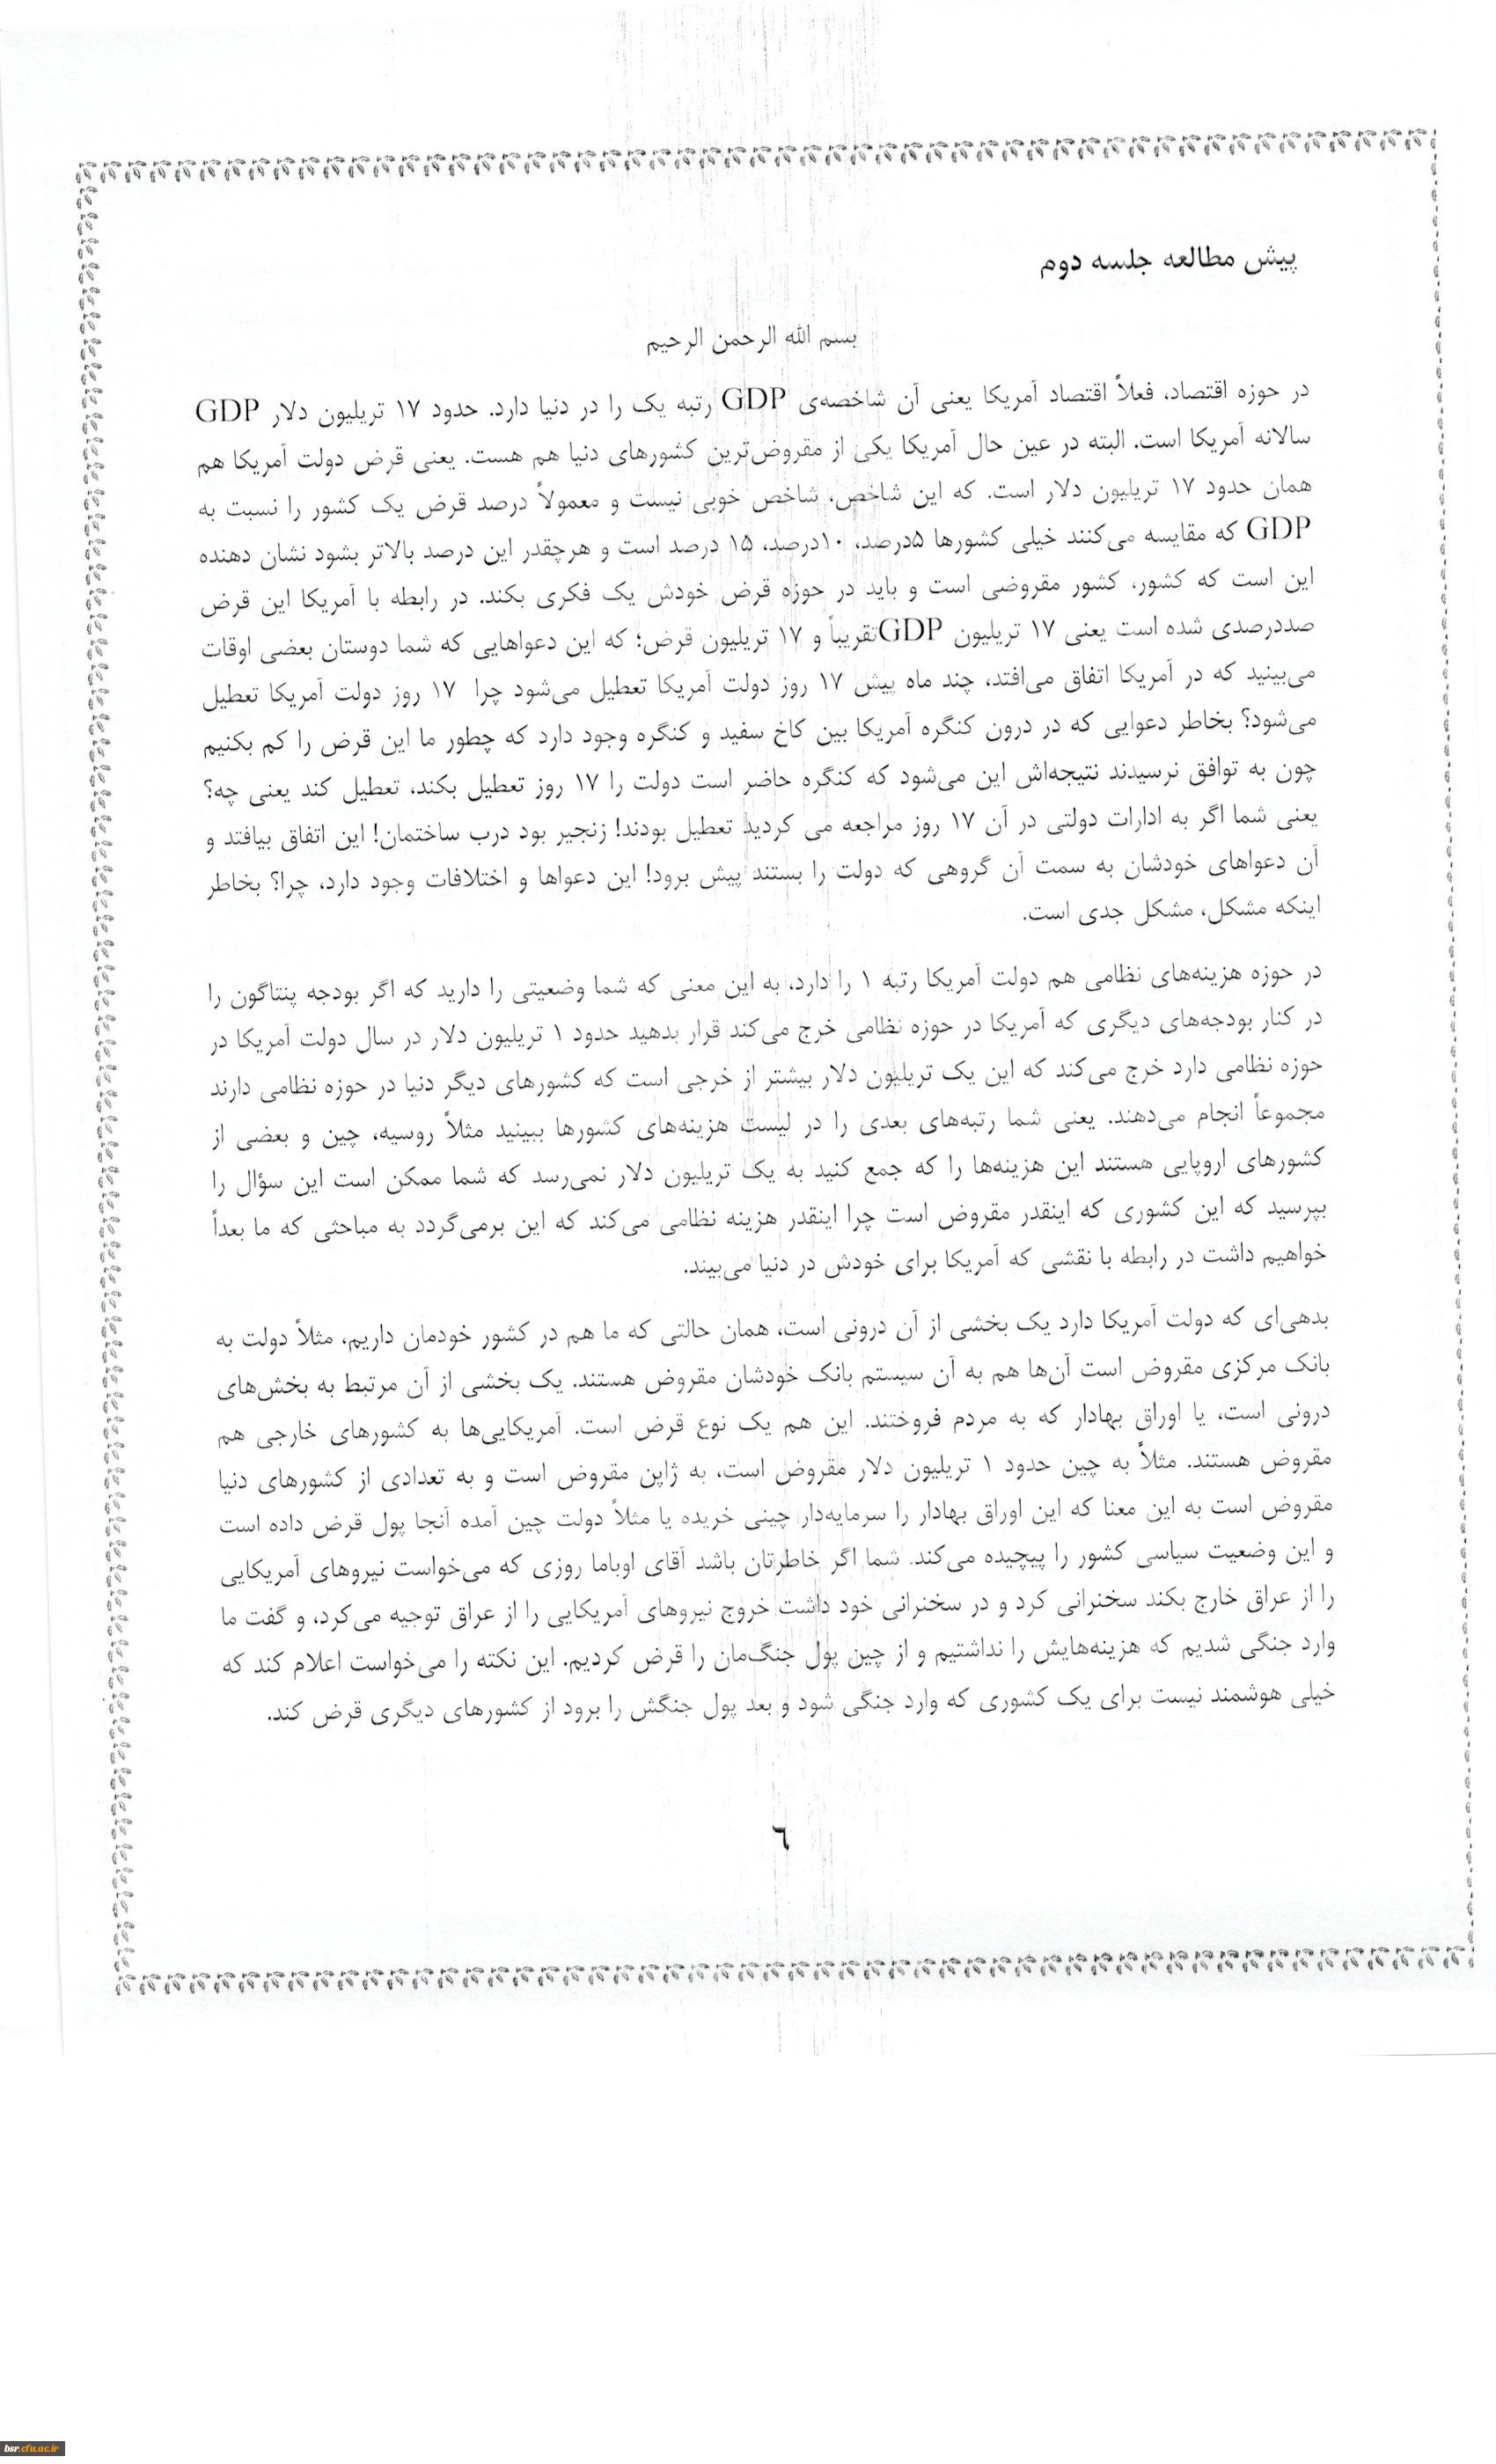 پیش مطالعه جلسه دوم
بسم الله الرحمن الرحیم
در حوزه اقتصاد، فعلاً اقتصاد آمریکا یعنی آن شاخصه‌ی GDP رتبه یک را در دنیا دارد. حدود ۱۷ تریلیون دلار GDP
سالانه آمریکا است. البته در عین حال آمریکا یکی از مقروض‌ترین کشورهای دنیا هم هست. یعنی قرض دولت آمریکا هم
همان حدود ۱۷ تریلیون دلار است. که این شاخص، شاخص خوبی نیست و معمولاً درصد قرض یک کشور را نسبت به
GDP که مقایسه می‌کنند خیلی کشورها ۵درصد، ۱۰درصد، ۱۵ درصد است و هرچقدر این درصد بالاتر بشود نشان دهنده
این است که کشور، کشور مقروضی است و باید در حوزه قرض خودش یک فکری بکند. در رابطه با آمریکا این قرض
صددرصدی شده است یعنی ۱۷ تریلیون GDPتقریباً و ۱۷ تریلیون قرض؛ که این دعواهایی که شما دوستان بعضی اوقات
می‌بینید که در آمریکا اتفاق می‌افتد، چند ماه پیش ۱۷ روز دولت آمریکا تعطیل می‌شود چرا ۱۷ روز دولت آمریکا تعطیل
می‌شود؟ بخاطر دعوایی که در درون کنگره آمریکا بین کاخ سفید و کنگره وجود دارد که چطور ما این قرض را کم بکنیم
چون به توافق نرسیدند نتیجه‌اش این می‌شود که کنگره حاضر است دولت را ۱۷ روز تعطیل بکند، تعطیل کند یعنی چه؟
یعنی شما اگر به ادارات دولتی در آن ۱۷ روز مراجعه می کردید تعطیل بودند! زنجیر بود درب ساختمان! این اتفاق بیافتد و
آن دعواهای خودشان به سمت آن گروهی که دولت را بستند پیش برود! این دعواها و اختلافات وجود دارد، چرا؟ بخاطر
اینکه مشکل، مشکل جدی است.
در حوزه هزینه‌های نظامی هم دولت آمریکا رتبه ۱ را دارد، به این معنی که شما وضعیتی را دارید که اگر بودجه پنتاگون را
در کنار بودجه‌های دیگری که آمریکا در حوزه نظامی خرج می‌کند قرار بدهید حدود ۱ تریلیون دلار در سال دولت آمریکا در
حوزه نظامی دارد خرج می‌کند که این یک تریلیون دلار بیشتر از خرجی است که کشورهای دیگر دنیا در حوزه نظامی دارند
مجموعاً انجام می‌دهند. یعنی شما رتبه‌های بعدی را در لیست هزینه‌های کشورها ببینید مثلاً روسیه، چین و بعضی از
کشورهای اروپایی هستند این هزینه‌ها را که جمع کنید به یک تریلیون دلار نمی‌رسد که شما ممکن است این سؤال را
بپرسید که این کشوری که اینقدر مقروض است چرا اینقدر هزینه نظامی می‌کند که این برمی‌گردد به مباحثی که ما بعداً
خواهیم داشت در رابطه با نقشی که آمریکا برای خودش در دنیا می‌بیند.
بدهی‌ای که دولت آمریکا دارد یک بخشی از آن درونی است، همان حالتی که ما هم در کشور خودمان داریم، مثلاً دولت به
بانک مرکزی مقروض است آن‌ها هم به آن سیستم بانک خودشان مقروض هستند. یک بخشی از آن مرتبط به بخش‌های
درونی است، یا اوراق بهادار که به مردم فروختند. این هم یک نوع قرض است. آمریکایی‌ها به کشورهای خارجی هم
مقروض هستند. مثلاً به چین حدود ۱ تریلیون دلار مقروض است، به ژاپن مقروض است و به تعدادی از کشورهای دنیا
مقروض است به این معنا که این اوراق بهادار را سرمایه‌دار چینی خریده یا مثلاً دولت چین آمده آنجا پول قرض داده است
و این وضعیت سیاسی کشور را پیچیده می‌کند. شما اگر خاطرتان باشد آقای اوباما روزی که می‌خواست نیروهای آمریکایی
را از عراق خارج بکند سخنرانی کرد و در سخنرانی خود داشت خروج نیروهای آمریکایی را از عراق توجیه می‌کرد، و گفت ما
وارد جنگی شدیم که هزینه‌هایش را نداشتیم و از چین پول جنگ‌مان را قرض کردیم. این نکته را می‌خواست اعلام کند که
خیلی هوشمند نیست برای یک کشوری که وارد جنگی شود و بعد پول جنگش را برود از کشورهای دیگری قرض کند.
٦
bsr.cfu.ac.ir